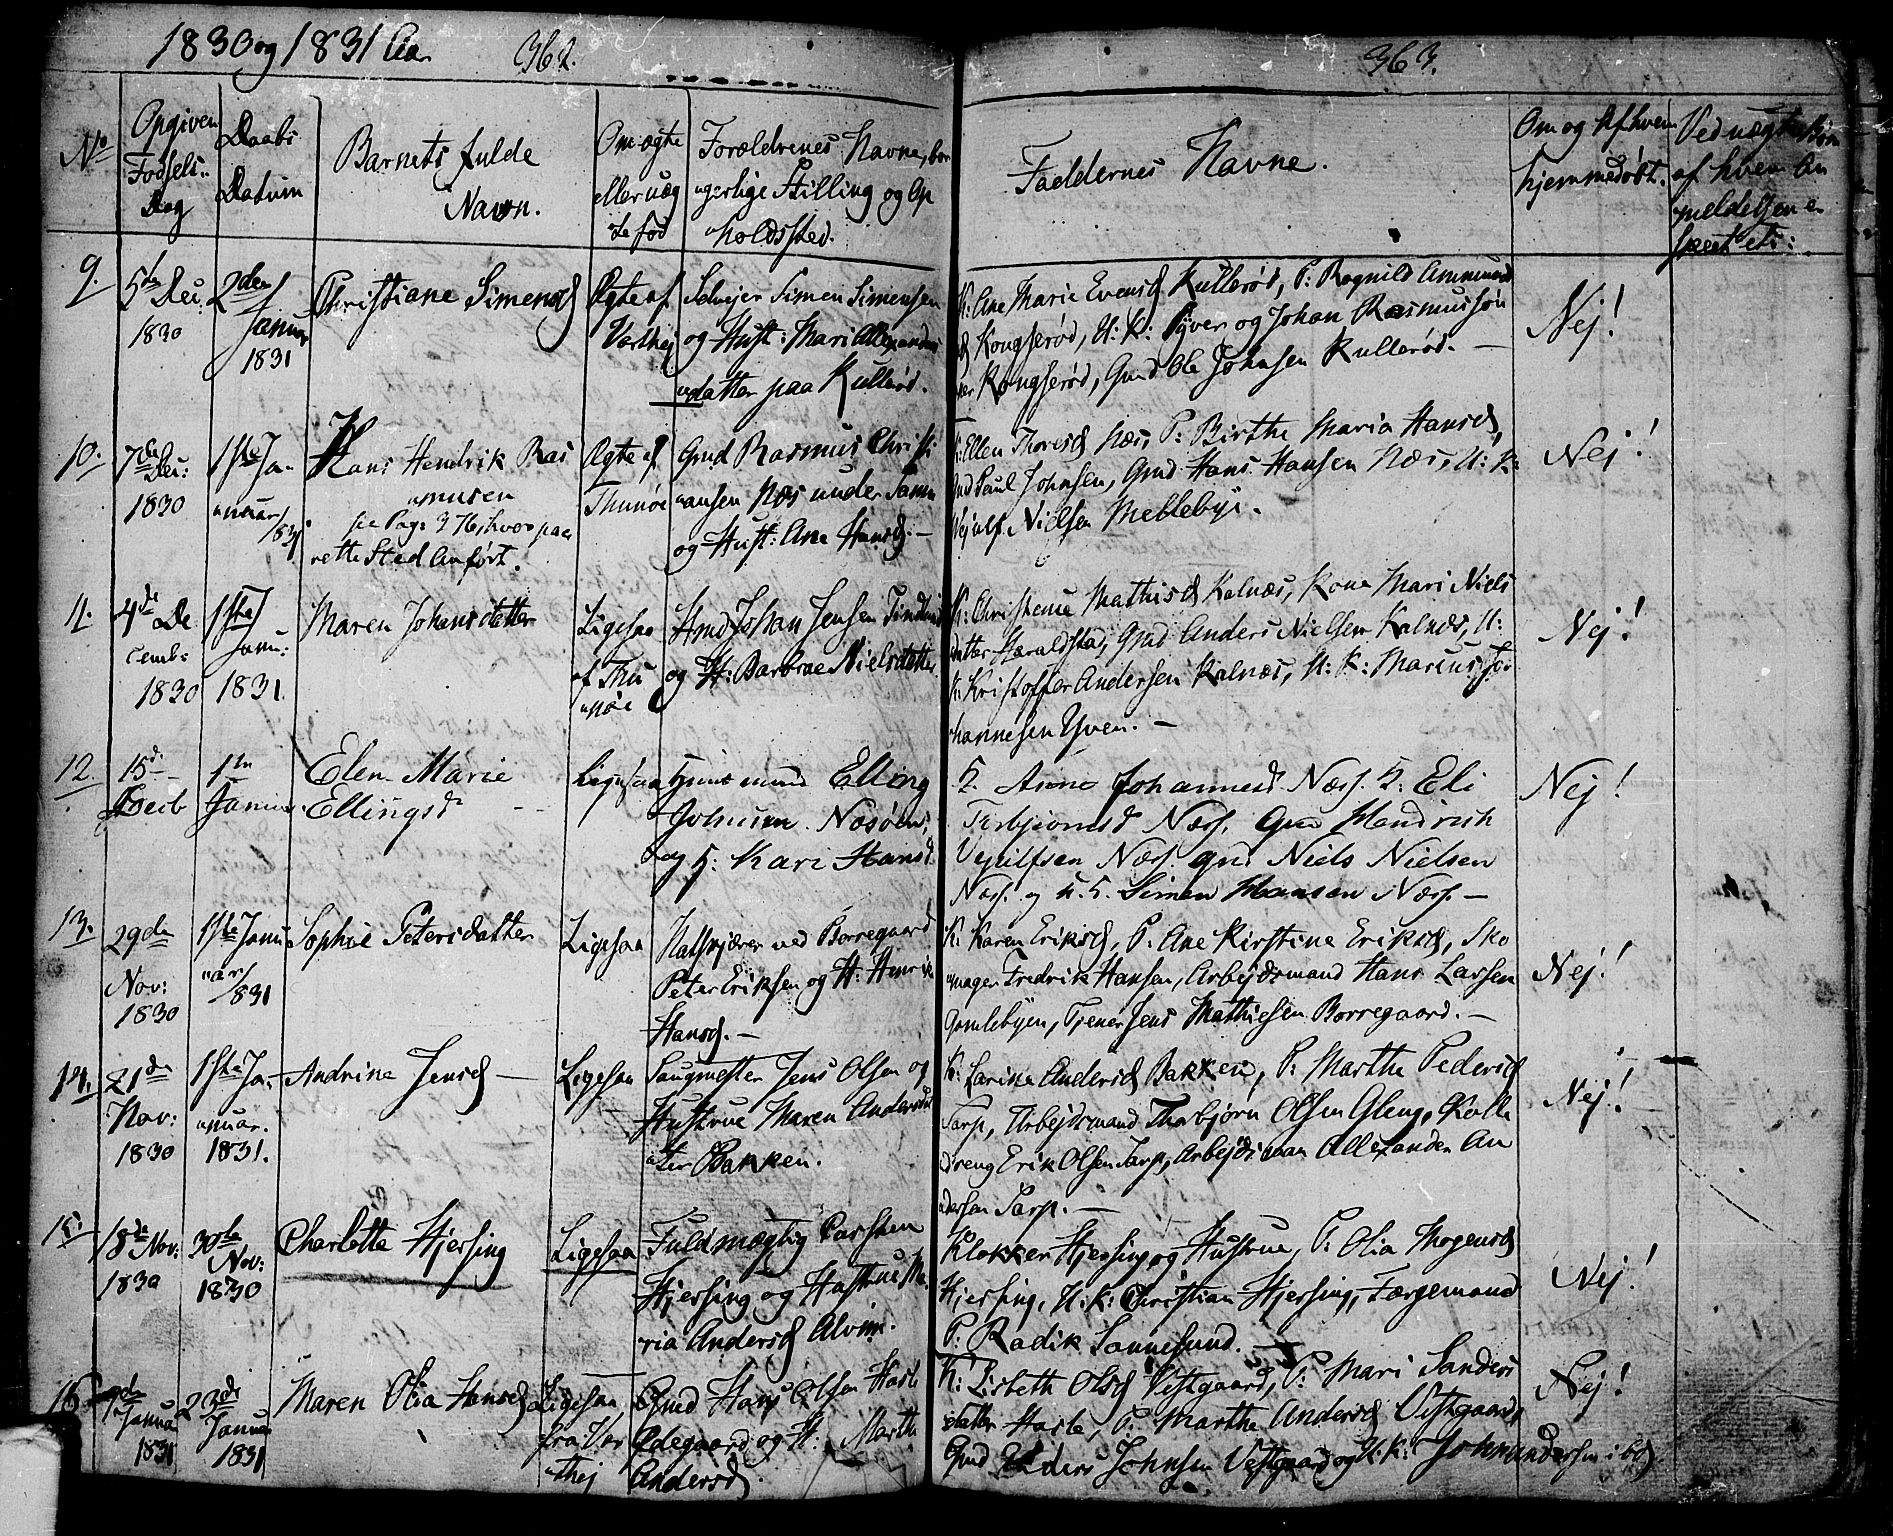 1830 og 1831 Aar 362.
No
Opgiven Fødsels Dag
Daabs Datum
Barnets fulde Navn.
Om ægte eller uægte fød
Forældrenes Navne, borgerlige Stilling og Opholdssted.
9.
5te Dec: 1830
2den Januar 1831
Christiane Simensd
Ægte af Varthej
Selvejer Simen Simensen
og Hust: Mari Allexanders
datter paa Kullerød.
10.
7de Dec: 1830
1ste Januar 1831
Hans Hendrik Ras
musen
see Pag: 376, hvor paa
rette Sted Anført.
Ægte af Thunøe
Gmd Rasmus Christi
ansen Næs under
og Hust: Ane Hansd. —
11.
4de December 1830
1ste Janu: 1831.
Maren Johansdatter
Ligesaa af Thunøe
Hmd Johan Jensen
og H: Barbrae Nielsdatter
12.
15de Decb
1ste Januar
Elen Marie
Ellingsd
Ligesaa
Elling
Johnsen Næsøen,
og H: Kari Hansd.
13.
29de Nov: 1830
1ste Januar 1831
Sophie Petersdatter
Ligesaa
ved Borregaard
Peter Eriksen og H:
Hansd. —
14.
21de Nov: 1830
1ste Januar. 1831.
Andrine Jensd —
Ligesaa
Saugmester Jens Olsen og
Hustrue Maren Andersdat
ter Bakken.
15.
18de Nov: 1830
30te Nov: 1830
Charlotte Hjersing
Ligesaa
Fuldmægtig Carsten
Hjersing og Hustrue Ma
ria Andersd Alvim.
16
9de Januar 1831
23de Januar 1831
Maren Olia Hansd
Ligesaa fra Varthej
Gmd Hans Olsen Hasle
Ødegaard og H: Marthe
Andersd.
363.
Faddernes Navne.
Om og Af hvem hjemmedøbt.
Ved uægte Børn af hvem Anmeldelsen er skeet etc:
K: Ane Marie Evensd Kullerød, P: Ragnild Ammunds
d Kongserød, U: K: Syver og Johan Rasmussøn
ner Kongserød, Gmd Ole Johnsen Kullerød. —
Nej!
K: Ellen Thoresd Næs, P: Birthe Maria Hansd,
Gmd Paul Johnsen, Gmd Hans Hansen Næs, U: K:
Nielsen Mellebye.
Nej!
K: Mathisd Kalnæs, Kone Mari Niels
datter Haraldstad, Gmd Anders Nielsen Kalnæs, U:
K: Kristoffer Andersen Kalnæs, U: K: Marius Jo
hannesen Yven. —
Nej!
K. Anne Johannesd Næss. K: Eli
Torbjørnsd Næss. Gmd Hendrich
Vejulfsen Næss. Gmd Niels Nielsen
Næss. og U. K. Simen Hansen Næss. —
Nej!
K: Karen Eriksd, P: Ane Kirstine Eriksd, Sko
mager Fredrik Hansen, Arbejdsmand Hans Larsen
Gamlebyen, Tjener Jens Mathiesen Borregaard. —
Nej!
K: Larine Andersd Bakken, P: Marthe Pedersd
Sarp, Arbejdsmand Thorbjørn Olsen Gleng, Kulle
dreng Erik Olsen Sarp, Arbejdsman Allexander An
dersen Sarp. —
Nej!
Klokker Hjersing og Hustrue, P: Olia Mogensd
Hjersing, U: K: Christian Hjersing, Færgemand
P: Radik Sannesund. —
Nej!
K: Lisbeth Olsd Vestgaard, P: Mari Sanders
datter Hasle, P: Marthe Andersd Vestgaard,
Gmd Anders Johnsen Vestgaard og U: K: John Andersen ibd.
Nej!